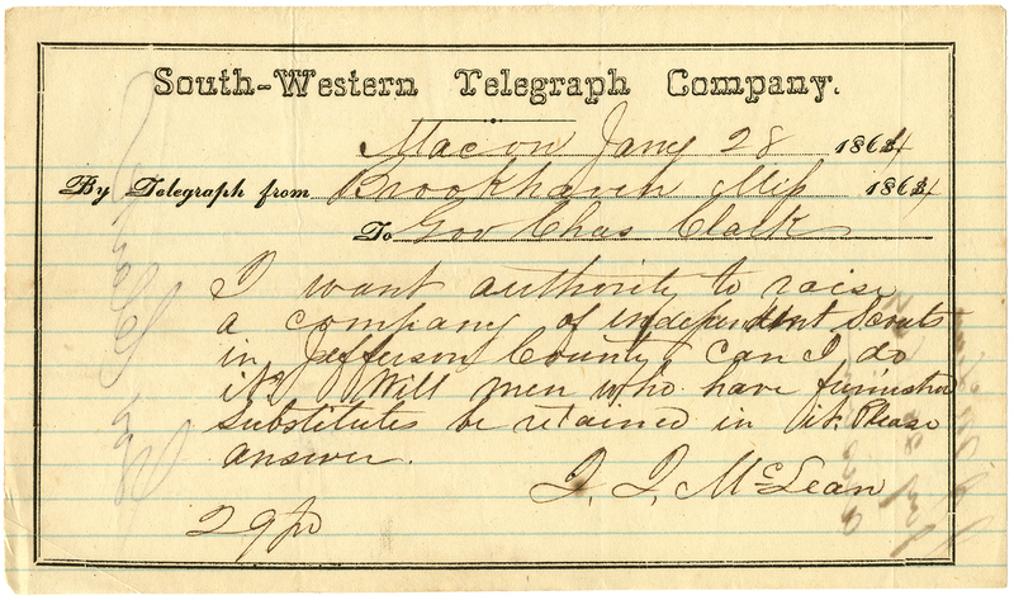 South-Western Telegraph Company.
Macon Jany 28 1864
By Telegraph from Brookhaven Miss 1864
To Gov Chas Clark
I want authority to raise
a company of independent Scouts
in Jefferson County, can I do
it? Will men who have furnished
substitutes be retained in it. Please
answer.
J. J. McLean
29 pd